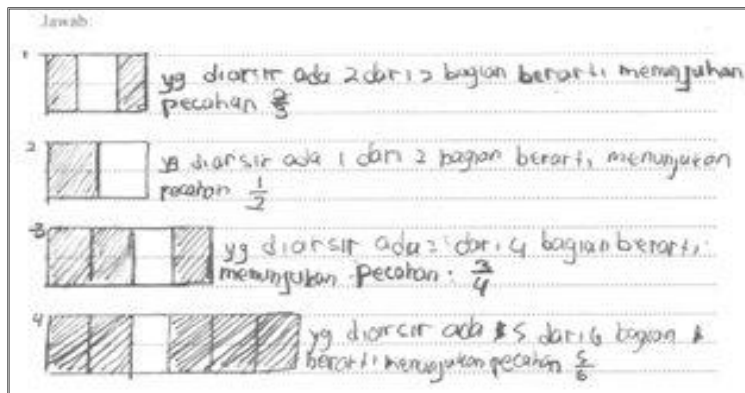 Jawab:
1 yg diarsir ada 2 dari 3 bagian berarti menunjukan
pecahan 2/3
2 yg diarsir ada 1 dari 2 bagian berarti menunjukan
pecahan 1/2
3 yg diarsir ada 3 dari 4 bagian berarti
menunjukan pecahan: 3/4
4 yg diarsir ada 5 dari 6 bagian
berarti menunjukan pecahan 5/6